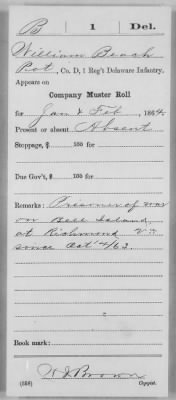 B 1 Del.
William Beach
Pvt, Co. D, 1 Reg't Delaware Infantry.
Appears on
Company Muster Roll
for Jan & Feb, 1864.
Present or absent Absent
Stoppage, $ 100 for
Due Gov't, $ 100 for
Remarks: Prisoner of war
on Bell Island
at Richmond Va
since Oct 14/63.
Book mark:
(358) Copyist.